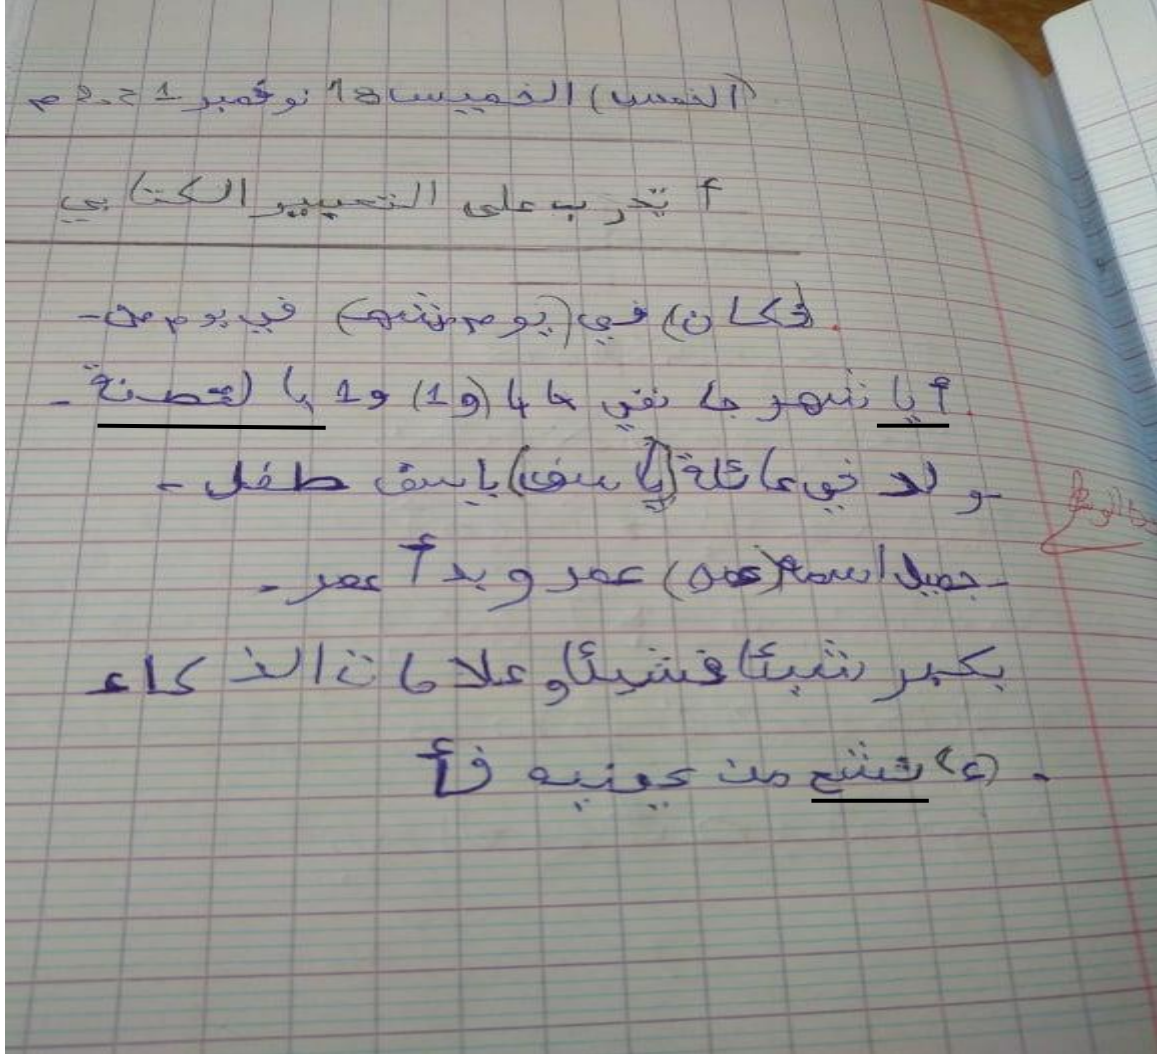 (الخميس) الخميس 18 نوفمبر 2021 م
أتدرب على التعبير الكتابي
(فكان) في (يوم شهر) في يوم من
أيا شهر جانفي 44 (و1) و1 با لعصنة
ولد في عائلة (ياسف) ياسف طفل
جميل اسمه (عمر) عمر وبدأ عمر
يكبر شيئا فشيئا وعلامات الذكاء
(ع) تشع من عينيه فأ